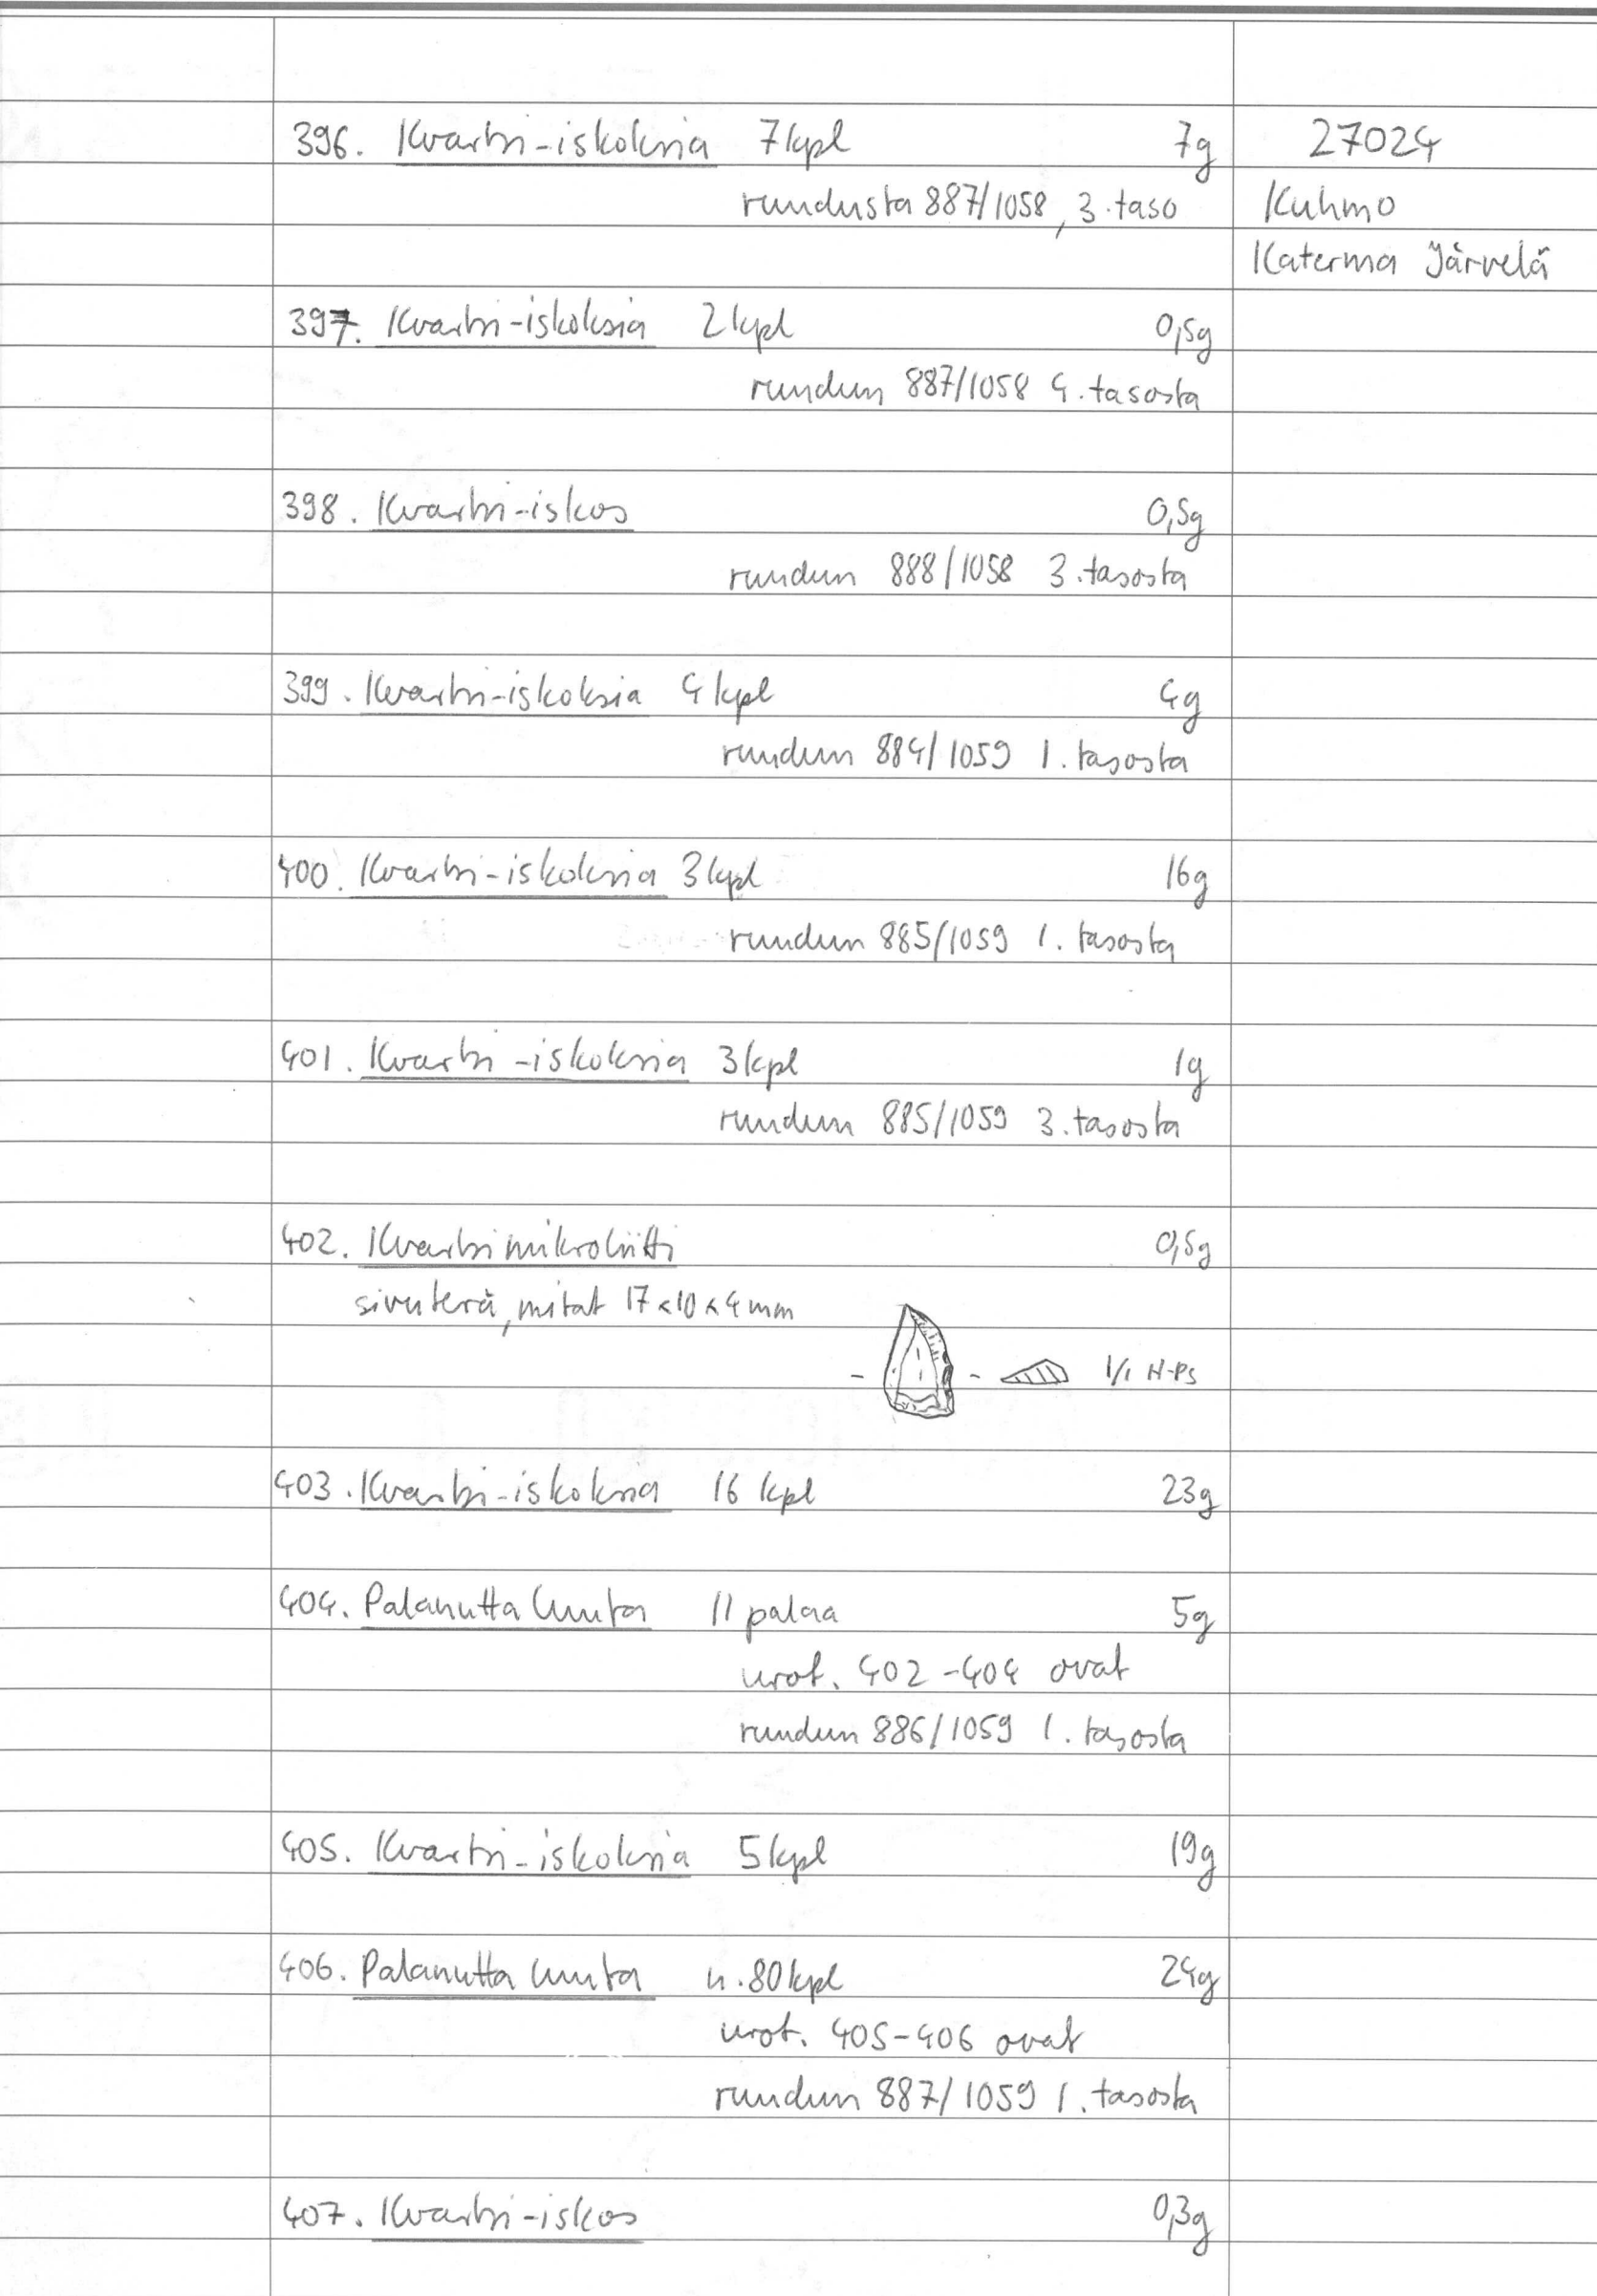 396. Kvartsi-iskoksia 7 kpl 7g 27024
ruudusta 887/1058, 3. taso Kuhmo
Katerma Järvelä
397. Kvartsi-iskoksia 2 kpl 0,5g
ruudun 887/1058 4. tasosta
398. Kvartsi-iskos 0,5g
ruudun 888/1058 3. tasosta
399. Kvartsi-iskoksia 4 kpl 4g
ruudun 884/1059 1. tasosta
400. Kvartsi-iskoksia 3 kpl 16g
ruudun 885/1059 1. tasosta
401. Kvartsi-iskoksia 3 kpl 1g
ruudun 885/1059 3. tasosta
402. Kvartsimikroliitti 0,5g
sivuterä, mitat 17x10x4mm
1/1 H-PS
403. Kvartsi-iskoksia 16 kpl 23g
404. Palanutta luuta 11 palaa 5g
nrot. 402-404 ovat
ruudun 886/1059 1. tasosta
405. Kvartsi-iskoksia 5 kpl 19g
406. Palanutta luuta n. 80 kpl 24g
nrot. 405-406 ovat
ruudun 887/1059 1. tasosta
407. Kvartsi-iskos 0,3g